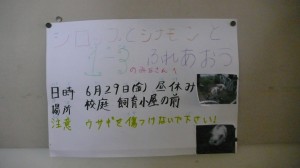 シロップとシナモンと
1-2
ふれあおう
のみなさんへ
日時 6月29日(金) 昼休み
場所 校庭 飼育小屋の前
注意 ウサギを傷つけないで下さいね